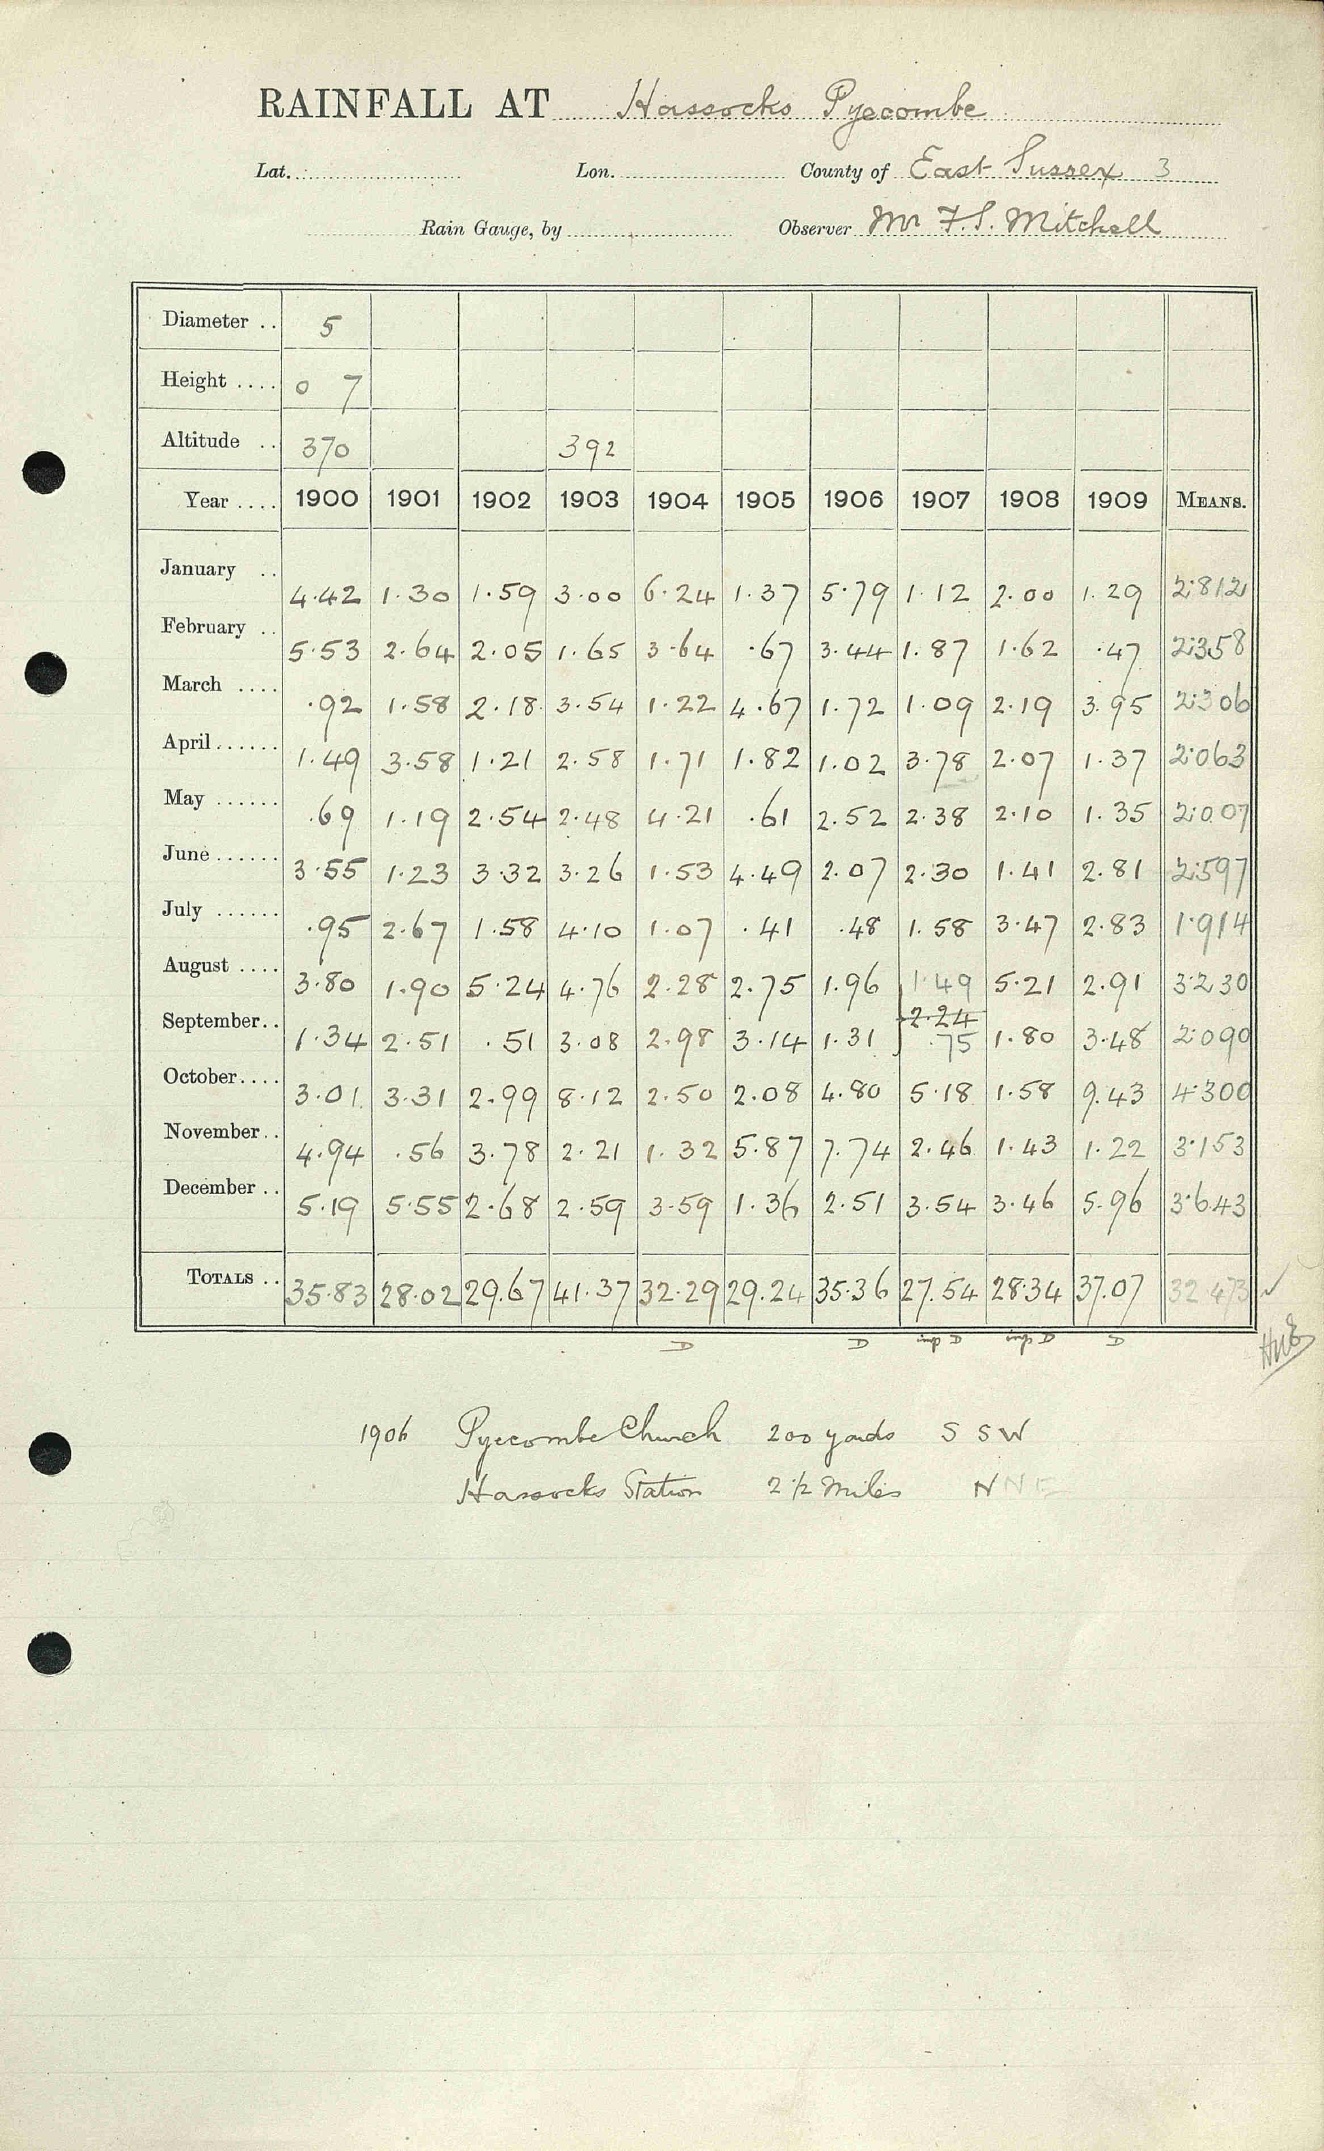 RAINFALL AT Hassocks Pyecombe
Lat. Lon. County of East Sussex 3
Rain Gauge, by Observer Mr F.S. Mitchell
Diameter .. 5
Height .... 0 7
Altitude .. 370 392
Year .... 1900 1901 1902 1903 1904 1905 1906 1907 1908 1909 MEANS.
January .. 4.42 1.30 1.59 3.00 6.24 1.37 5.79 1.12 2.00 1.29 2.812
February .. 5.53 2.64 2.05 1.65 3.64 .67 3.44 1.87 1.62 .47 2.358
March .... .92 1.58 2.18 3.54 1.22 4.67 1.72 1.09 2.19 3.95 2.306
April ...... 1.49 3.58 1.21 2.58 1.71 1.82 1.02 3.78 2.07 1.37 2.063
May ...... .69 1.19 2.54 2.48 4.21 .61 2.52 2.38 2.10 1.35 2.007
June ...... 3.55 1.23 3.32 3.26 1.53 4.49 2.07 2.30 1.41 2.81 2.597
July ...... .95 2.67 1.58 4.10 1.07 .41 .48 1.58 3.47 2.83 1.914
August .... 3.80 1.90 5.24 4.76 2.28 2.75 1.96 1.49 5.21 2.91 3.230
2.24
September .. 1.34 2.51 .51 3.08 2.98 3.14 1.31 .75 1.80 3.48 2.090
October .... 3.01 3.31 2.99 8.12 2.50 2.08 4.80 5.18 1.58 9.43 4.300
November .. 4.94 .56 3.78 2.21 1.32 5.87 7.74 2.46 1.43 1.22 3.153
December .. 5.19 5.55 2.68 2.59 3.59 1.36 2.51 3.54 3.46 5.96 3.643
TOTALS .. 35.83 28.02 29.67 41.37 32.29 29.24 35.36 27.54 28.34 37.07 32.473
D D imp D imp D D
1906 Pyecombe Church 200 yards S S W
Hassocks Station 2 1/2 miles N N E